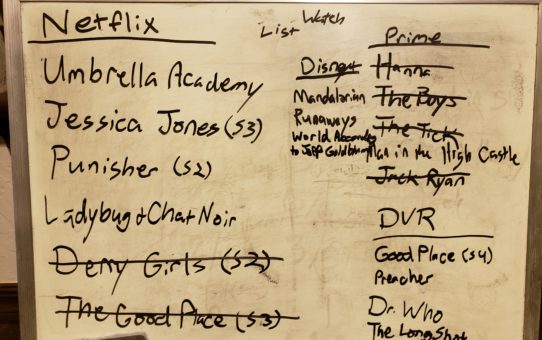 Netflix
Umbrella Academy
Jessica Jones (S3)
Punisher (S2)
Ladybug & Chat Noir
Derry Girls (S2)
The Good Place (S3)
Watch
List
Disney+
Mandalorian
Runaways
World According
to Jeff Goldblum
Prime
Hanna
The Boys
The Tick
Man in the High Castle
Jack Ryan
DVR
Good Place (S4)
Preacher
Dr. Who
The Long Shot